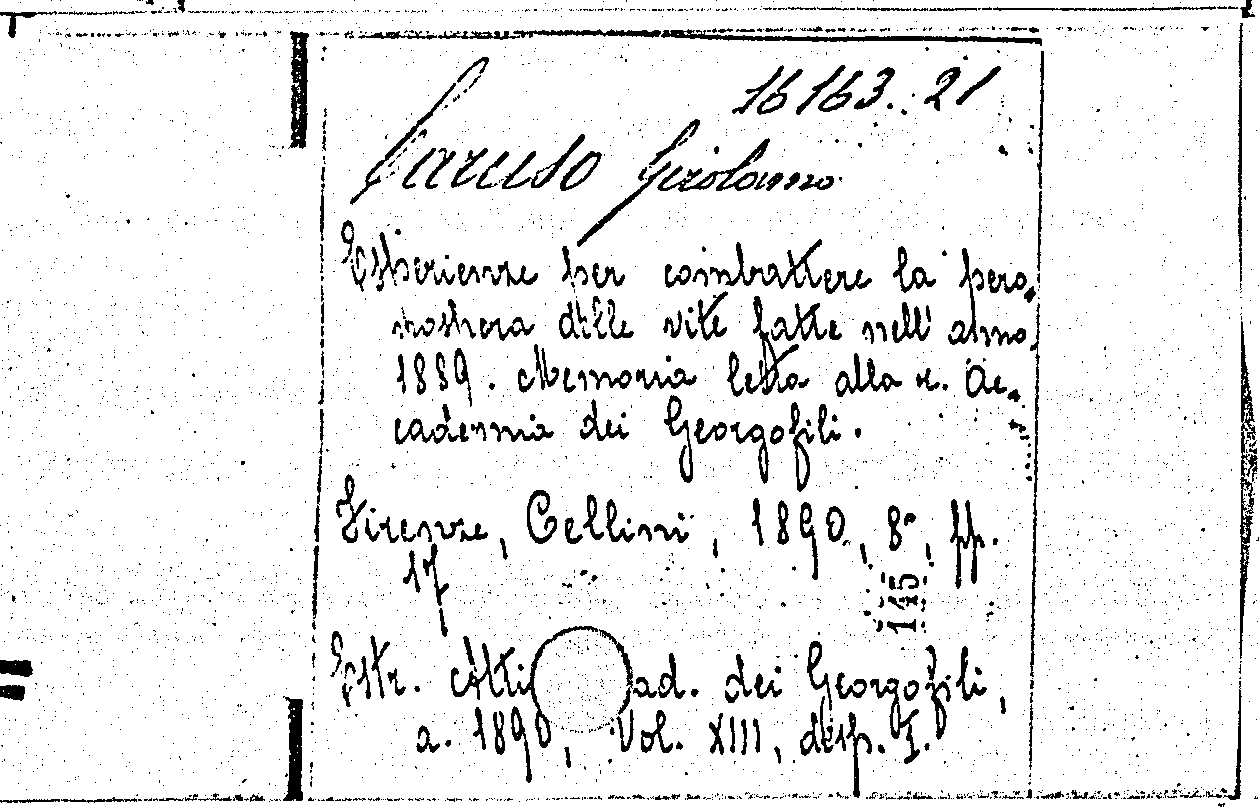 16163.21
Caruso Girolamo
Esperienze per combattere la pero-
nospora delle viti fatte nell'anno
1889. Memoria letta alla r. Ac-
cademia dei Georgofili.
Firenze, Cellini, 1890, 8°, pp.
17
145
Estr. Atti ad. dei Georgofili,
a. 1890, Vol. XIII, disp. I.